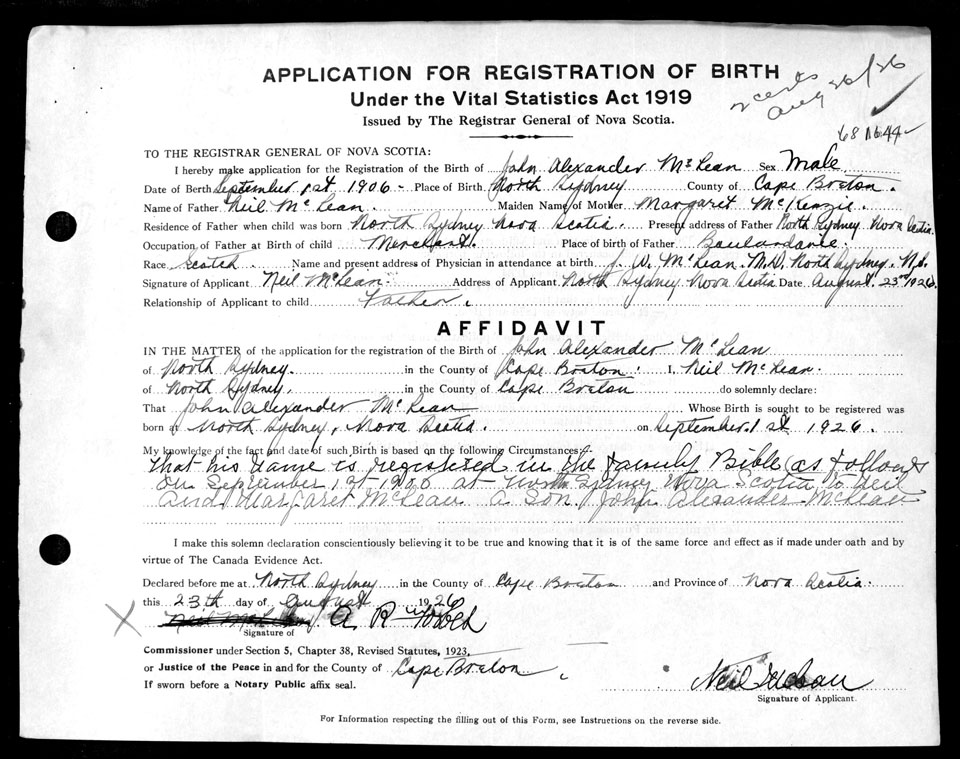 APPLICATION FOR REGISTRATION OF BIRTH
Under the Vital Statistics Act 1919
Issued by The Registrar General of Nova Scotia.
2 certs
Aug 26/26
TO THE REGISTRAR GENERAL OF NOVA SCOTIA:
I hereby make application for the Registration of the Birth of John Alexander McLean Sex Male
Date of Birth September 1st 1906 - Place of Birth North Sydney County of Cape Breton.
Name of Father Neil McLean. Maiden Name of Mother Margaret McKenzie.
Residence of Father when child was born North Sydney Nova Scotia. Present address of Father North Sydney Nova Scotia
Occupation of Father at Birth of child Merchant. Place of birth of Father Boulardarie.
Race Scotch. Name and present address of Physician in attendance at birth J. W. McLean. M.D. North Sydney. N.S.
Signature of Applicant Neil McLean. Address of Applicant North Sydney Nova Scotia Date August 23rd 1926.
Relationship of Applicant to child Father.
AFFIDAVIT
IN THE MATTER of the application for the registration of the Birth of John Alexander McLean
of North Sydney. in the County of Cape Breton. I, Neil McLean.
of North Sydney. in the County of Cape Breton do solemnly declare:
That John Alexander McLean Whose Birth is sought to be registered was
born at North Sydney, Nova Scotia. on September 1st 1926.
My knowledge of the fact and date of such Birth is based on the following Circumstances:
That his Name is registered in the family Bible (as follows
On September 1st 1906 at North Sydney Nova Scotia to Neil
And Margaret McLean A Son, John Alexander McLean
I make this solemn declaration conscientiously believing it to be true and knowing that it is of the same force and effect as if made under oath and by
virtue of The Canada Evidence Act.
Declared before me at North Sydney in the County of Cape Breton and Province of Nova Scotia.
this 23th day of August 1926
X A R
Signature of
Commissioner under Section 5, Chapter 38, Revised Statutes, 1923,
or Justice of the Peace in and for the County of Cape Breton.
If sworn before a Notary Public affix seal.
Neil McLean
Signature of Applicant.
For Information respecting the filling out of this Form, see Instructions on the reverse side.